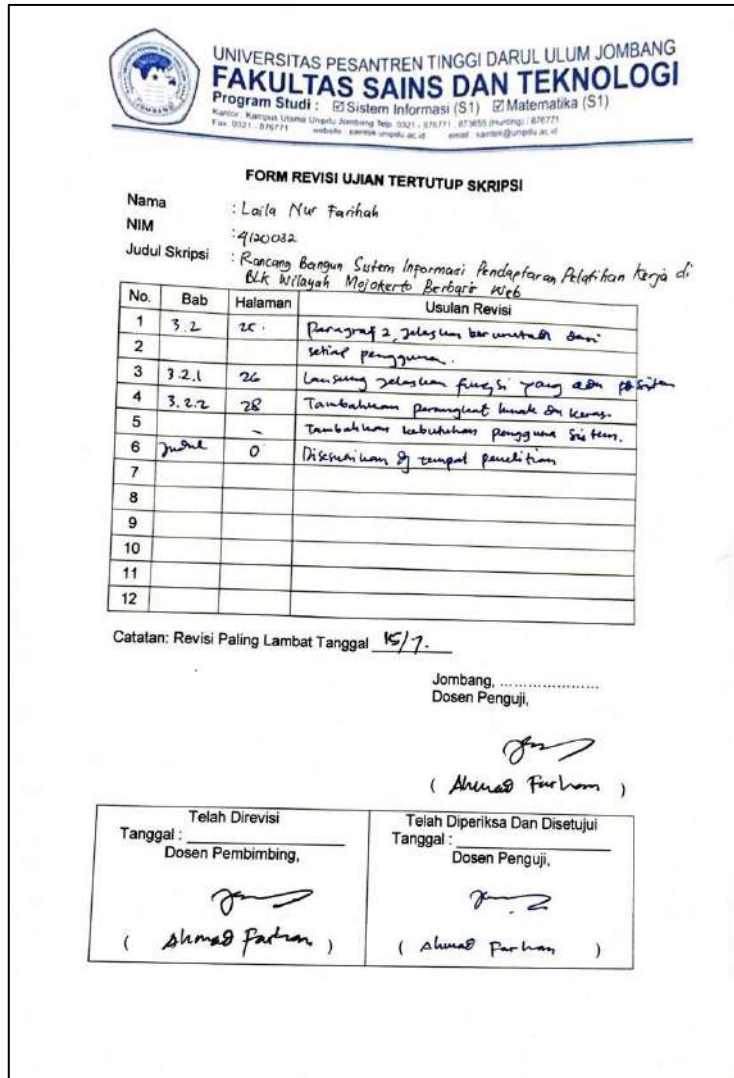 UNIVERSITAS PESANTREN TINGGI DARUL ULUM JOMBANG
FAKULTAS SAINS DAN TEKNOLOGI
Program Studi : ☑Sistem Informasi (S1) ☑Matematika (S1)
Kantor : Kampus Utama Unipdu Jombang Telp. 0321 - 876771 , 873655 (Hunting) / 876771
Fax. 0321 - 876771 website : saintek.unipdu.ac.id email : saintek@unipdu.ac.id
JOMBANG
FORM REVISI UJIAN TERTUTUP SKRIPSI
Nama : Laila Nur Farihah
NIM : 4120032
Judul Skripsi : Rancang Bangun Sistem Informasi Pendaftaran Pelatihan Kerja di
BLK Wilayah Mojokerto Berbasis Web
No. Bab Halaman Usulan Revisi
1 3.2 25. Paragraf 2, jelaskan dari
2 setiap pengguna.
3 3.2.1 26 Lansung jelaskan fungsi yang ada
4 3.2.2 28 Tambahkan perangkat lunak dn keras.
5 - Tambahkan kebutuhan pengguna sistem.
6 Judul 0 Disesuaikan dg tempat penelitian
7
8
9
10
11
12
Catatan: Revisi Paling Lambat Tanggal 15/7.
Jombang, .....................
Dosen Penguji,
( Ahmad Farhan )
Telah Direvisi
Tanggal :
Dosen Pembimbing,
( Ahmad Farhan )
Telah Diperiksa Dan Disetujui
Tanggal :
Dosen Penguji,
( Ahmad Farhan )